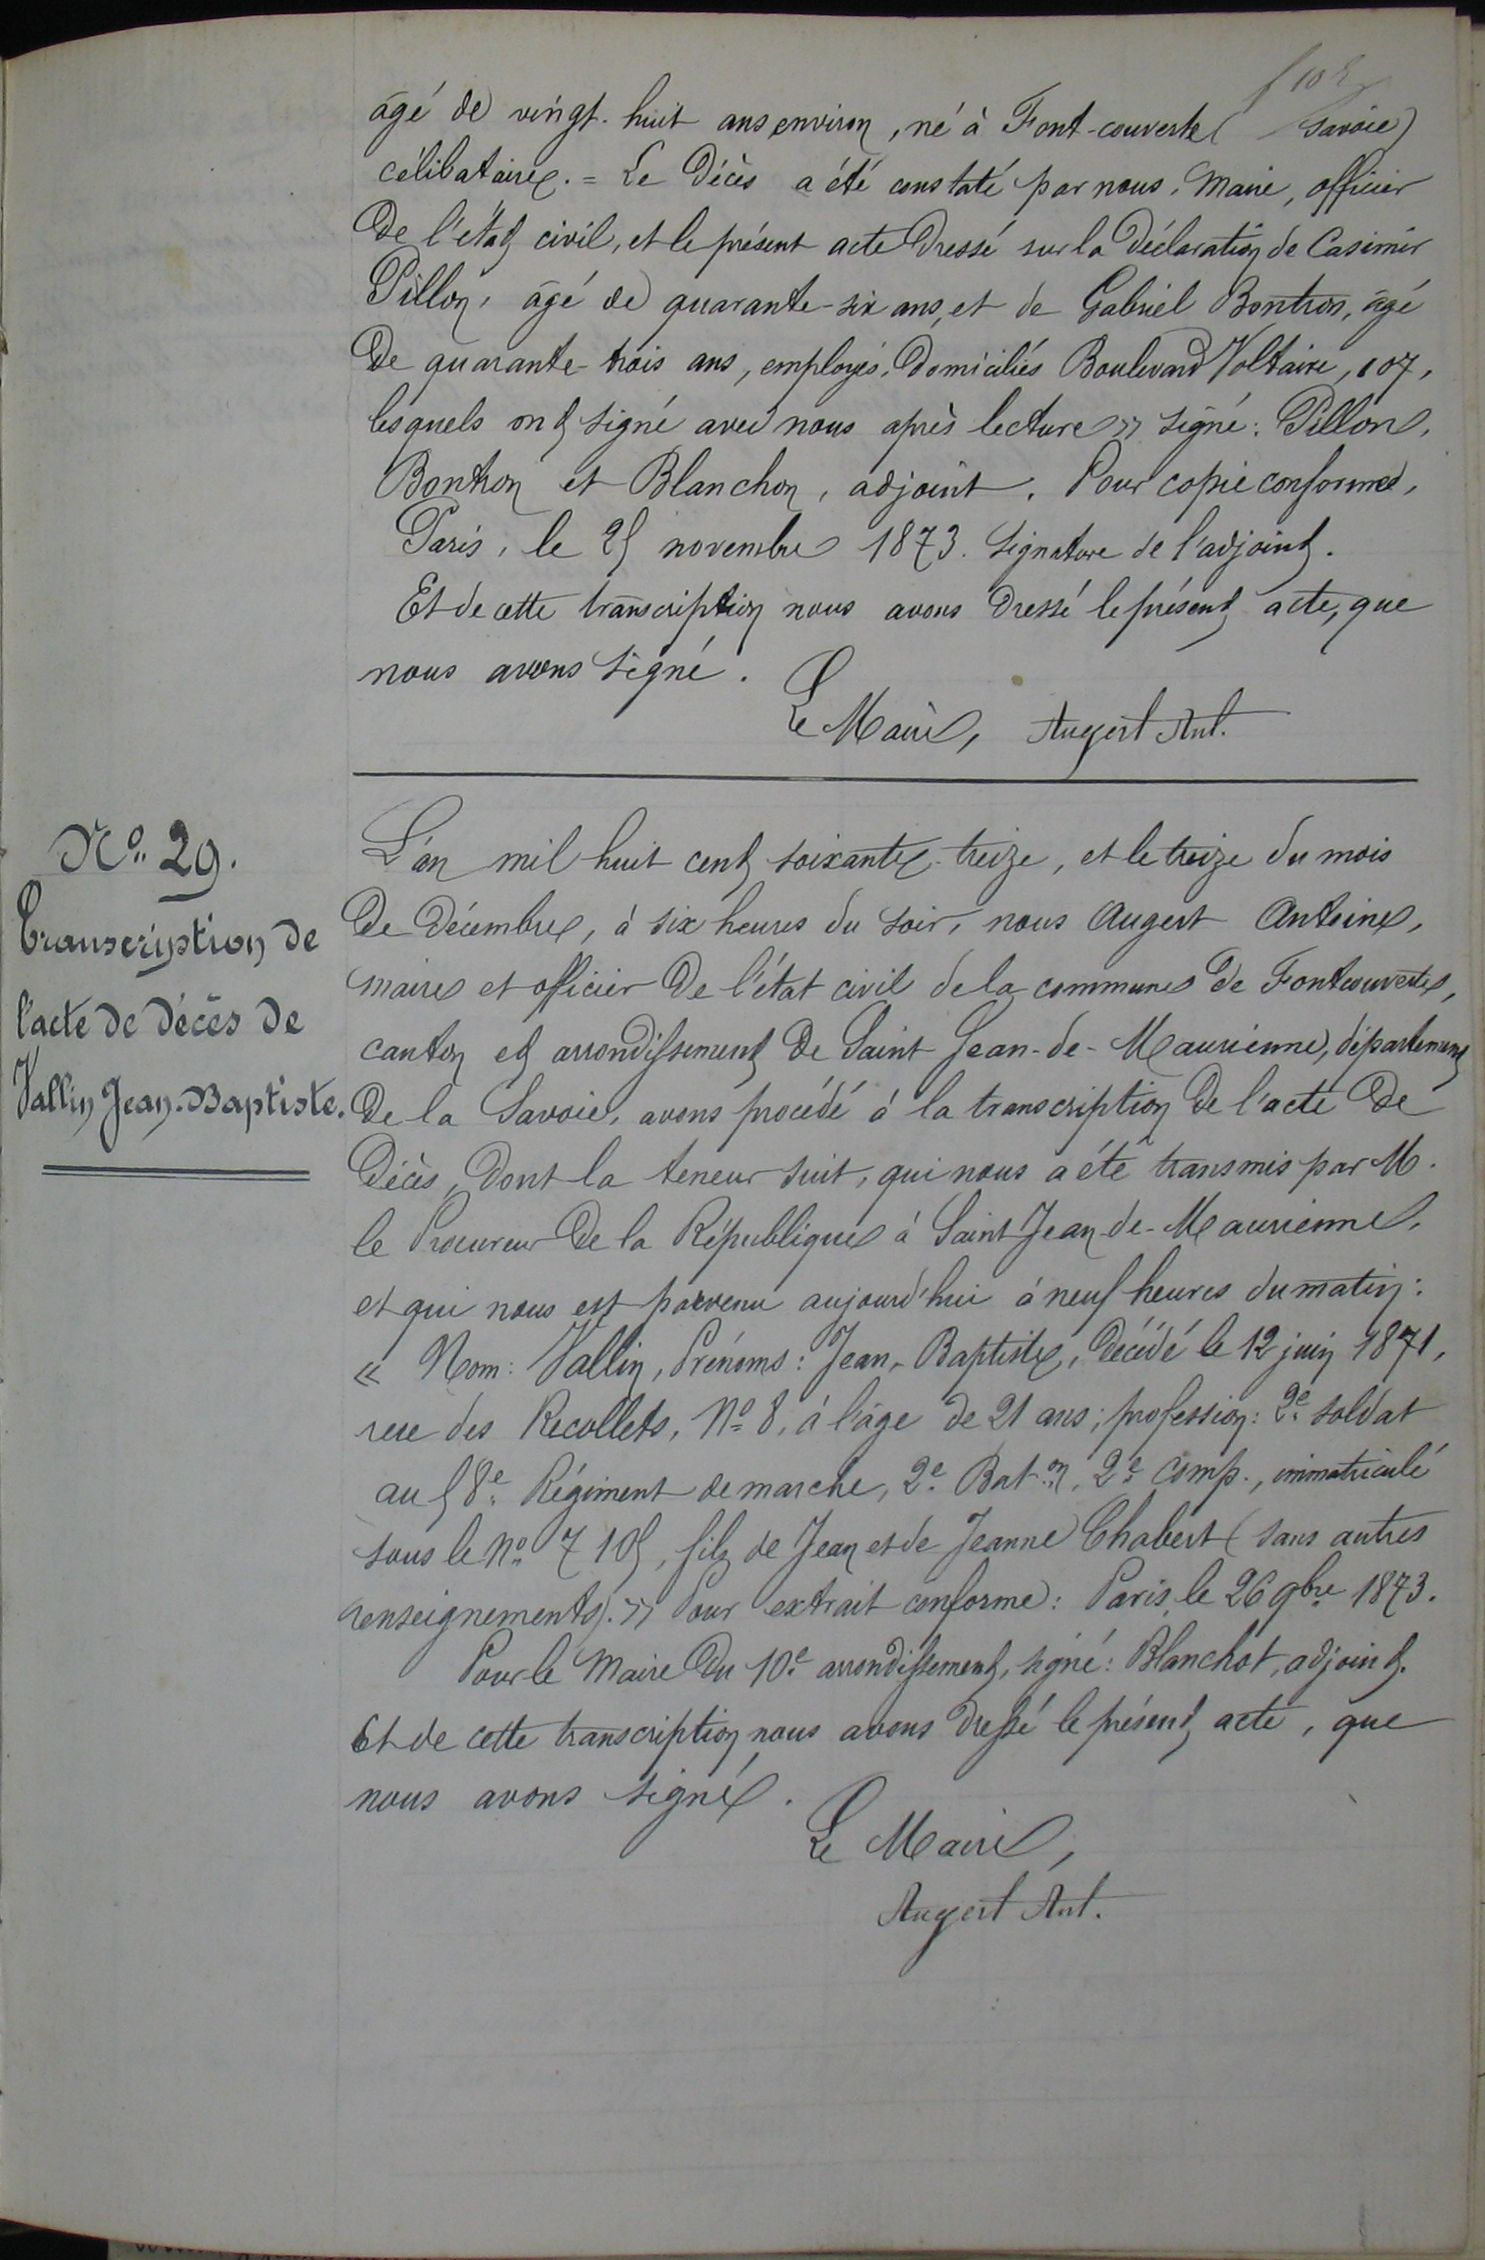 âgé de vingt-huit ans environ, né à Font-couverte (Savoie)
célibataire. = Le décès a été constaté par nous, Maire, officier
de l'état civil, et le présent acte dressé sur la déclaration de Casimir
Pillon, âgé de quarante-six ans, et de Gabriel Bontron, âgé
de quarante-trois ans, employés, domiciliés Boulevard Voltaire, 107,
lesquels ont signé avec nous après lecture » signé: Pillon,
Bontron et Blanchon, adjoint. Pour copie conforme,
Paris, le 25 novembre 1873. Signature de l'adjoint.
Et de cette transcription nous avons dressé le présent acte, que
nous avons signé.
Le Maire, Augert Ant.
No. 29.
Transcription de
l'acte de décès de
Vallin Jean-Baptiste.
L'an mil huit cent soixante-treize, et le treize du mois
de décembre, à six heures du soir, nous Augert Antoine,
maire et officier de l'état civil de la commune de Fontcouverte,
canton et arrondissement de Saint Jean-de-Maurienne, département
de la Savoie, avons procédé à la transcription de l'acte de
décès, dont la teneur suit, qui nous a été transmis par M.
le Procureur de la République à Saint Jean-de-Maurienne,
et qui nous est parvenu aujourd'hui à neuf heures du matin:
« Nom: Vallin, Prénoms: Jean-Baptiste, décédé le 12 juin 1871,
rue des Recollets, No 8, à l'âge de 21 ans; profession: 2e soldat
au 58e Régiment de marche, 2e Baton, 2e Comp., immatriculé
sous le No 7105, fils de Jean et de Jeanne Chabert (sans autres
renseignements). » Pour extrait conforme: Paris, le 26 9bre 1873.
Pour le Maire du 10e arrondissement, signé: Blanchot, adjoint.
Et de cette transcription nous avons dressé le présent acte, que
nous avons signé.
Le Maire,
Augert Ant.